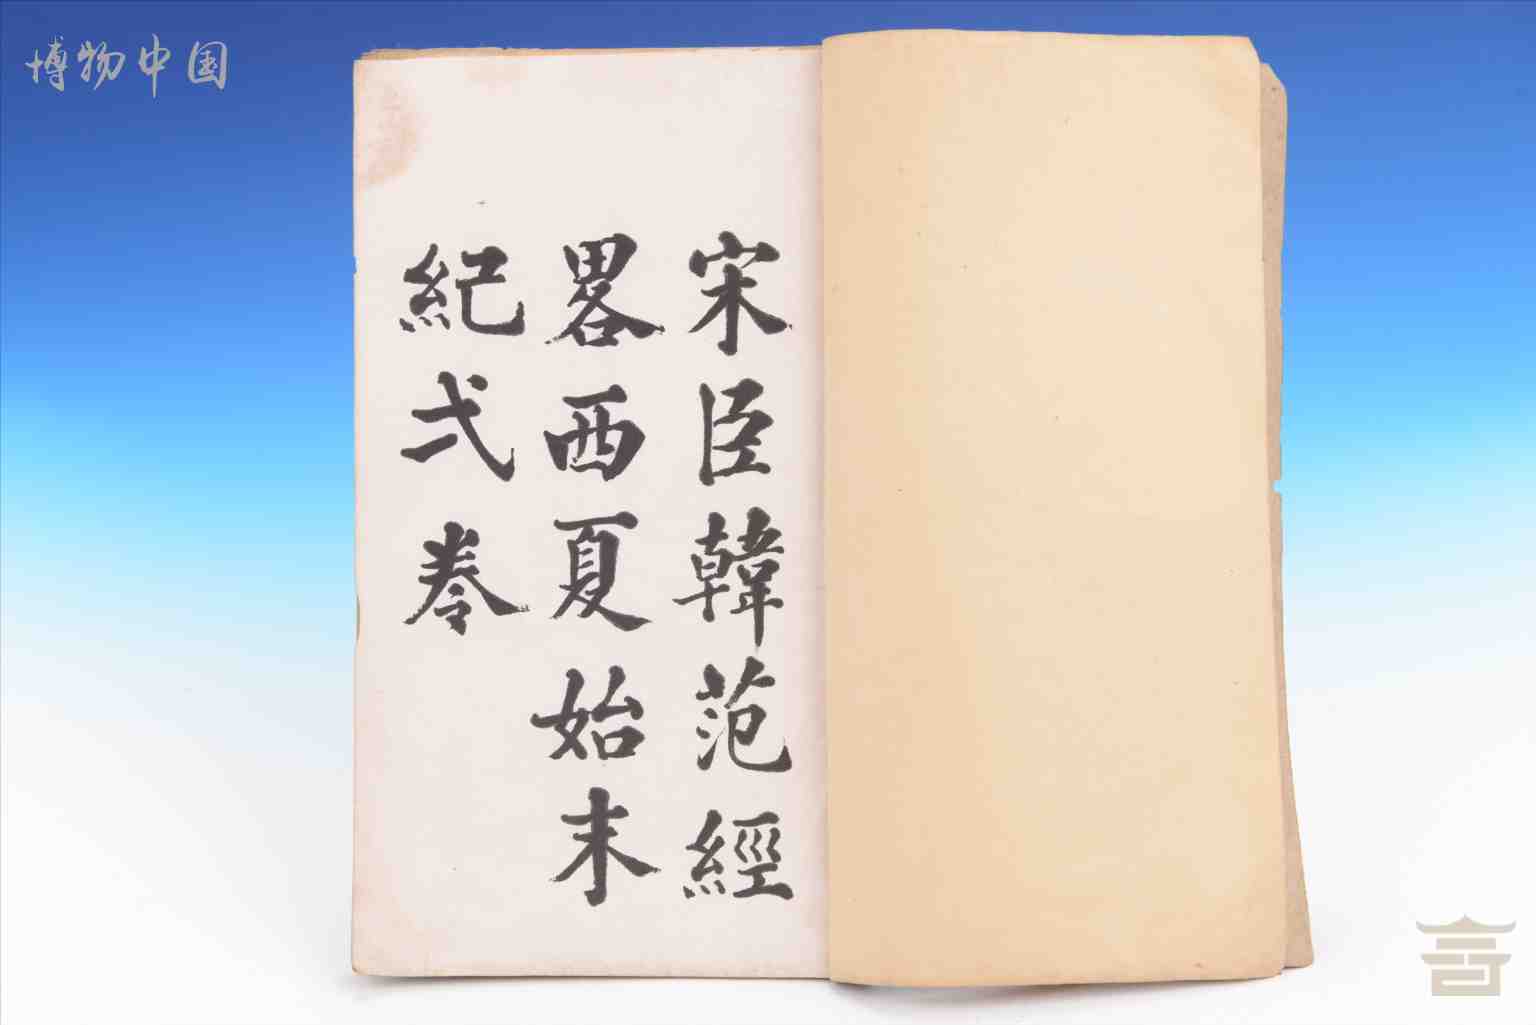 博物中国
宋臣韓范經
畧西夏始末
紀弍卷